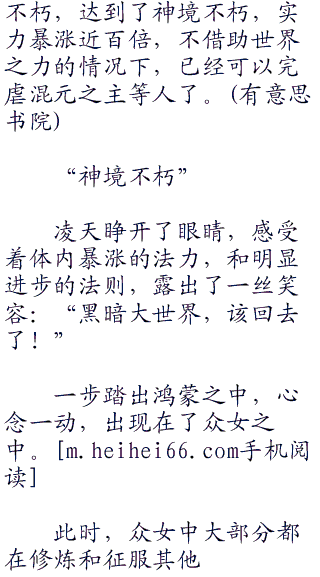 不朽，达到了神境不朽，实
力暴涨近百倍，不借助世界
之力的情况下，已经可以完
虐混元之主等人了。(有意思
书院)
“神境不朽”
凌天睁开了眼睛，感受
着体内暴涨的法力，和明显
进步的法则，露出了一丝笑
容：“黑暗大世界，该回去
了！”
一步踏出鸿蒙之中，心
念一动，出现在了众女之
中。[m.heihei66.com手机阅
读]
此时，众女中大部分都
在修炼和征服其他